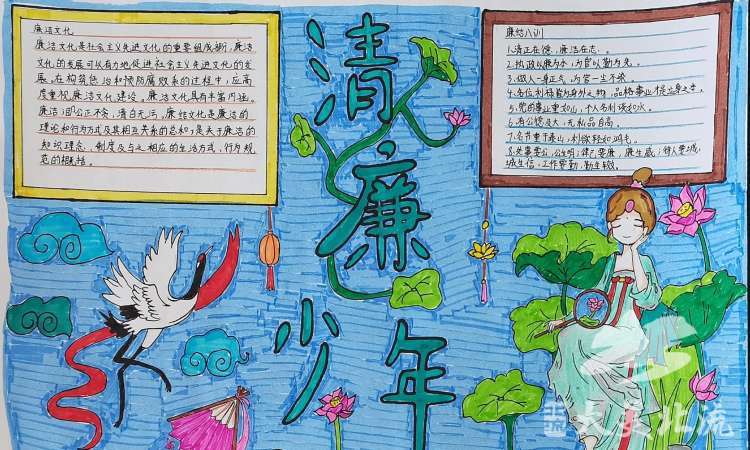 廉洁文化
廉洁文化是社会主义先进文化的重要组成部分,廉洁
文化的发展可以有力地促进社会主义先进文化的发
展。在构筑惩治和预防腐败体系的过程中,应高
度重视廉洁文化建设。廉洁文化具有丰富内涵。
廉洁即公正不贪,清白无污,廉洁文化是廉洁的
理论和行为方式及其相互关系的总和,是关于廉洁的
知识理念、制度及与之相应的生活方式、行为规
范的概括。
清廉
少年
廉洁八训
1.清正在德,廉洁在志。
2.执政以廉为本,为官以勤为先。
3.做人一身正气,为官一尘不染。
4.名位利禄皆为身外之物,品格事业
5.党的事业重如山,个人名利淡如水。
6.有公德乃大,无私品自高。
7.名节重于泰山,利欲轻如鸿毛。
8.处事要公,公生明;律己要廉,廉生威;待人要诚,
诚生信,工作要勤,勤生效。
大美北流